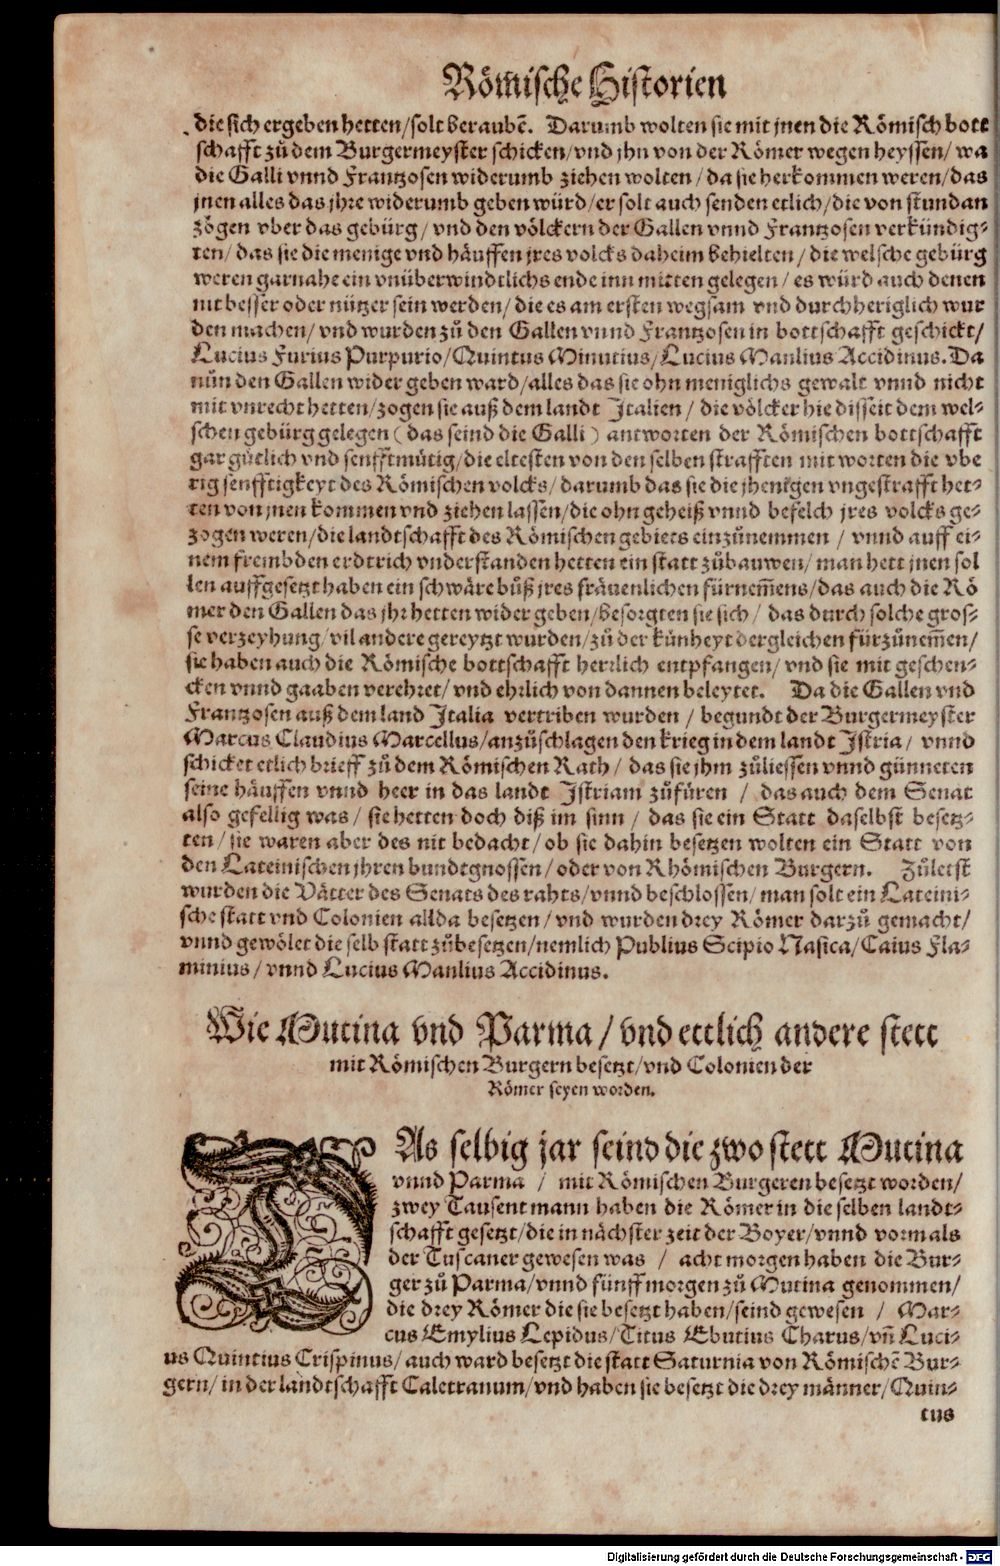 Römische Historien
die sich ergeben hetten/solt beraubē. Darumb wolten sie mit jnen die Römisch bott
schafft zů dem Burgermeyster schicken/vnd jhn von der Römer wegen heyssen/wa
die Galli vnnd Frantzosen widerumb ziehen wolten/da sie herkommen weren/das
jnen alles das jhre widerumb geben würd/er solt auch senden etlich/die von stundan
zögen vber das gebürg/vnd den völckern der Gallen vnnd Frantzosen verkündig-
ten/das sie die menige vnd häuffen jres volcks daheim behielten/die welsche gebürg
weren garnahe ein vnüberwindtlichs ende inn mitten gelegen/es würd auch denen
nit besser oder nützer sein werden/die es am ersten wegsam vnd durchheriglich wur
den machen/vnd wurden zů den Gallen vnnd Frantzosen in bottschafft geschickt/
Lucius Furius Purpurio/Quintus Minutius/Lucius Manlius Accidinus. Da
nůn den Gallen wider geben ward/alles das sie ohn meniglichs gewalt vnnd nicht
mit vnrecht hetten/zogen sie auß dem landt Italien/die völcker hie disseit dem wel-
schen gebürg gelegen (das seind die Galli) antworten der Römischen bottschafft
gar gütlich vnd senfftmütig/die eltesten von den selben strafften mit worten die vbe
rig senfftigkeyt des Römischen volcks/darumb das sie die jhenigen vngestrafft het-
ten von jnen kommen vnd ziehen lassen/die ohn geheiß vnnd befelch jres volcks ge-
zogen weren/die landtschafft des Römischen gebiets einzůnemmen/vnnd auff ei-
nem frembden erdtrich vnderstanden hetten ein statt zůbauwen/man hett jnen sol
len auffgesetzt haben ein schwäre bůß jres fräuenlichen fürnem̃ens/das auch die Rö
mer den Gallen das jhr hetten wider geben/besorgten sie sich/das durch solche gros-
se verzeyhung/vil andere gereytzt wurden/zů der künheyt dergleichen fürzůnem̃en/
sie haben auch die Römische bottschafft herrlich entpfangen/vnd sie mit geschen-
cken vnnd gaaben verehret/vnd ehrlich von dannen beleytet. Da die Gallen vnd
Frantzosen auß dem land Italia vertriben wurden/begundt der Burgermeyster
Marcus Claudius Marcellus/anzůschlagen den krieg in dem landt Istria/vnnd
schicket etlich brieff zů dem Römischen Rath/das sie jhm zůliessen vnnd günneten
seine häuffen vnnd heer in das landt Istriam zůfüren/das auch dem Senat
also gefellig was/sie hetten doch diß im sinn/das sie ein Statt daselbst besetz-
ten/sie waren aber des nit bedacht/ob sie dahin besetzen wolten ein Statt von
den Lateinischen jhren bundtgnossen/oder von Rhömischen Burgern. Zůletst
wurden die Vätter des Senats des rahts/vnnd beschlossen/man solt ein Lateini-
sche statt vnd Colonien allda besetzen/vnd wurden drey Römer darzů gemacht/
vnnd gewölet die selb statt zůbesetzen/nemlich Publius Scipio Nasica/Caius Fla-
minius/vnnd Lucius Manlius Accidinus.
Wie Mutina vnd Parma/vnd ettlich andere stett
mit Römischen Burgern besetzt/vnd Colonien der
Römer seyen worden.
DAs selbig jar seind die zwo stett Mutina
vnnd Parma/mit Römischen Burgeren besetzt worden/
zwey Tausent mann haben die Römer in die selben landt-
schafft gesetzt/die in nächster zeit der Boyer/vnnd vormals
der Tuscaner gewesen was/acht morgen haben die Bur-
ger zů Parma/vnnd fünff morgen zů Mutina genommen/
die drey Römer die sie besetzt haben/seind gewesen/Mar-
cus Emylius Lepidus/Titus Ebutius Charus/vn̄ Luci-
us Quintius Crispinus/auch ward besetzt die statt Saturnia von Römischē Bur-
gern/in der landtschafft Caletranum/vnd haben sie besetzt die drey männer/Quin-
tus
Digitalisierung gefördert durch die Deutsche Forschungsgemeinschaft - DFG